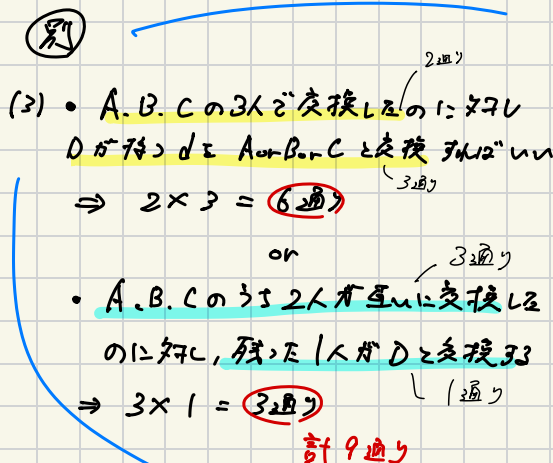 別
2通り
(3) • A.B.Cの3人で交換したのに対し
Dが持つdをAorBorCと交換すればいい
3通り
⇒ 2×3 = 6通り
or
3通り
• A.B.Cのうち2人が互いに交換した
のに対し,残った1人がDと交換する
1通り
⇒ 3×1 = 3通り
計9通り